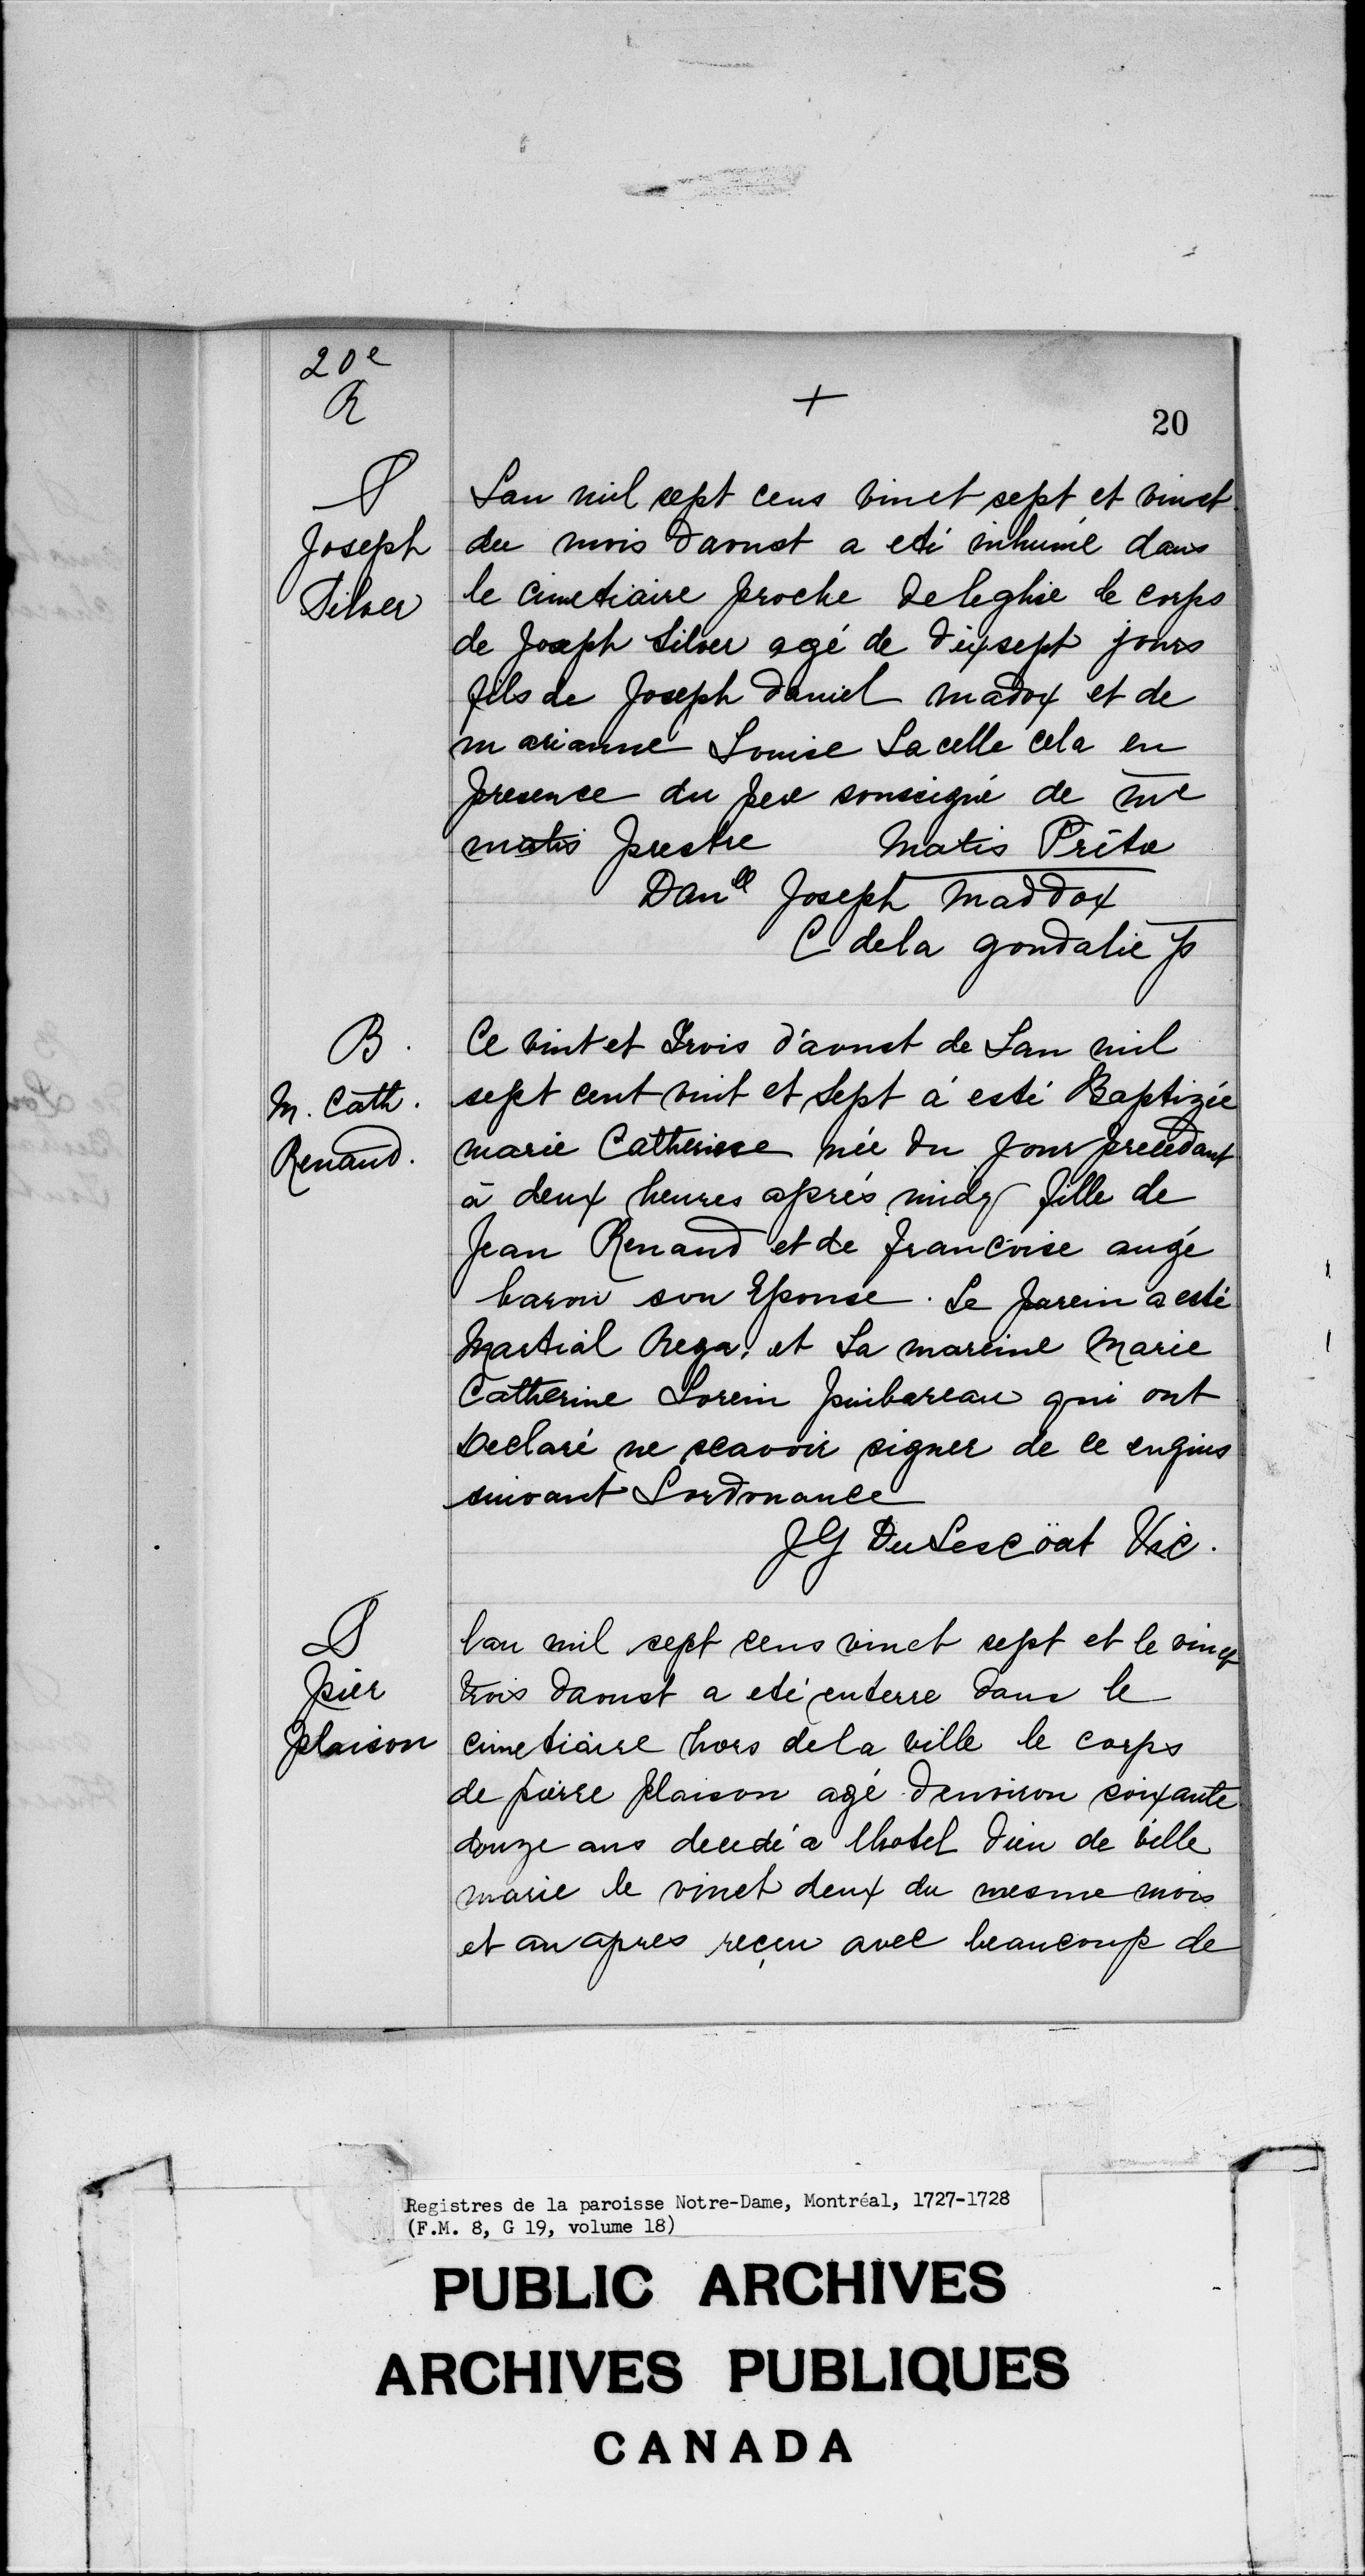 20e
R
+
20
S
Joseph
Silver
Lan mil sept cens vinct sept et vinct
du mois daoust a eté inhumé dans
le cimetiaire proche deleglise le corps
de Joseph Silver agé de dixsept jours
fils de Joseph daniel madox et de
marianne Louise Lacelle cela en
presence du pere soussigné de mre
matis prestre Matis Prêtre
Danll Joseph Maddox
C dela goudalie p
B.
M. Cath.
Renaud.
Ce vint et Trois d'aoust de Lan mil
sept cent vint et sept à esté Baptizée
marie Catherisse née du jour precedant
à deux heures aprés midy fille de
Jean Renaud et de francoise augé
baron son Epouse. Le parein a esté
Martial et La mareine Marie
Catherine Lorein puibareau qui ont
Declaré ne scavoir signer de ce enquis
suivant Lordonance
JG DuLescöat Vic.
S
pier
plaison
lan mil sept cens vinct sept et le vinct
trois daoust a eté enterre dans le
cimetiaire hors dela ville le corps
de pierre plaison agé denviron soixante
douze ans decedé a lhotel dieu de ville
marie le vinct deux du mesme mois
et an apres reçeu avec beaucoup de
Registres de la paroisse Notre-Dame, Montréal, 1727-1728
(F.M. 8, G 19, volume 18)
PUBLIC ARCHIVES
ARCHIVES PUBLIQUES
CANADA